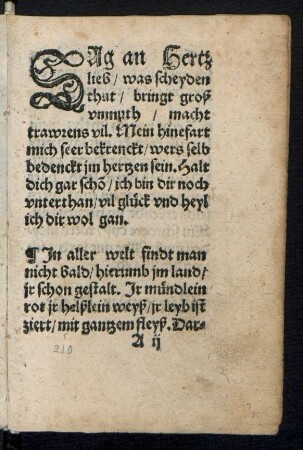 SAg an Hertz
lieb / was scheyden
thut / bringt groß
vnmuth / macht
trawrens vil. Mein hinefart
mich seer bekrenckt / wers selb
bedenckt jm hertzen sein. Halt
dich gar schõ / ich bin dir noch
vnterthan / vil glück vnd heyl
ich dir wol gan.
¶ In aller welt findt man
nicht bald / hierumb jm land /
jr schon gestalt. Ir mündlein
rot jr helßlein weyß / jr leyb ist
ziert / mit gantzem fleyß. Dar-
A ij
210